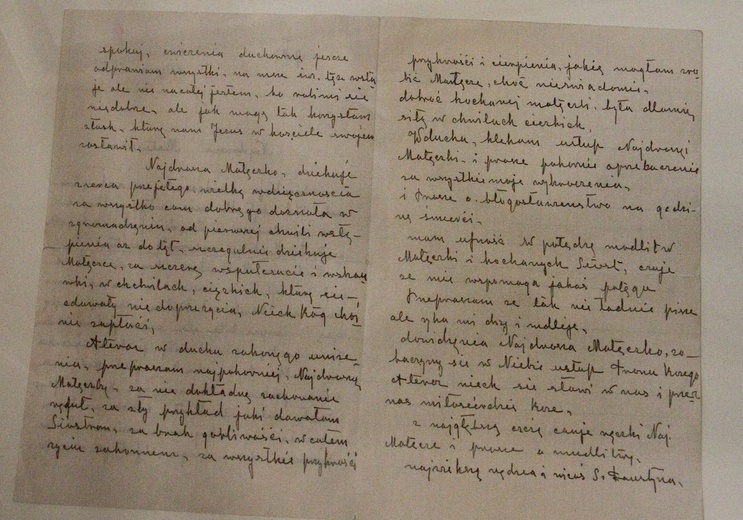 spokój, ćwiczenia duchowne jeszcze
odprawiam wszystki. na msze św. też wsta
je ale nie na całej jestem, bo robi mi się
niedobrze, ale jak mogę tak korzystam
z łask, które nam Jezus w kościele swojem
zostawił.
Najdroższa Mateczko, dziękuje
z serca przejętego wielką wdzięcznością
za wszystko com dobrego doznała w
zgromadzeniu, od pierwszej chwili wstą-
pienia aż dotąt, szczególnie dziękuje
Mateczce, za szczere współczucie i wskazó
wki, w chchwilach, ciężkich, które się
zdawały nie do przeżycia, Niech Bóg choj
nie zapłaci,
A teraz w duchu zakonnego uniże-
nia, przepraszam najpokorniej, Najdroższą
Mateczkę, za nie dokładne zachowanie
reguł, za zły przykład jaki dawałam
Siostrom, za brak gorliwości, w całem
życiu zakonnem, za wszystkie przykrości
przykrości i cierpienia, jakie mogłam zro
bić Mateczce, choć nieświadomie.
dobroć kochanej mateczki była dla mnie
siłą w chwilach ciężkich,
W duchu, klękam u stup Najdroższej
Mateczki. i prosze pokornie o przebaczenie
za wszystkie moje wykroczenia,
i prosze o błogosławieństwo na godzi-
nę śmierci.
mam ufność w potęgę modlitw
Mateczki i kochanych Siostr, czuje
że mie wspomaga jakaś potęga
Przepraszam że tak nie ładnie pisze
ale ręka mi drzy i mdleje,
dowidzenia Najdroższa Mateczko, zo-
baczymy się w Niebie u stup tronu Bożego
A teraz niech się sławi w nas i przez
nas miłosierdzie Boże,
z najgłębszą czcią całuje rączki Naj
Mateczce i prosze o modlitwę,
największa nędza i nicoś S. Faustyna.